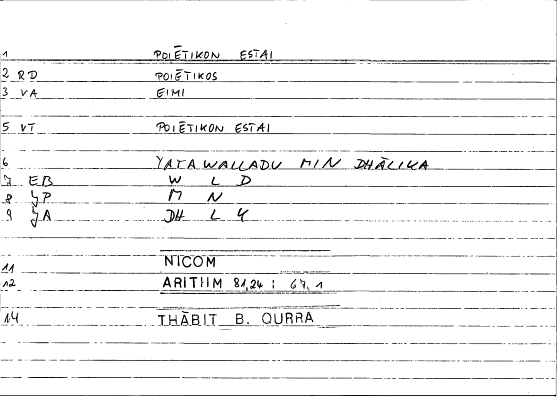 1 POIĒTIKON ESTAI
2 RD POIĒTIKOS
3 VA EIMI
5 VT POIĒTIKON ESTAI
6 YATAWALLADU MIN DHĀLIKA
7 EB W L D
8 JP M N
9 JA DH L K
11 NICOM
12 ARITIIM 81,24 : 67,1
14 THĀBIT B. QURRA